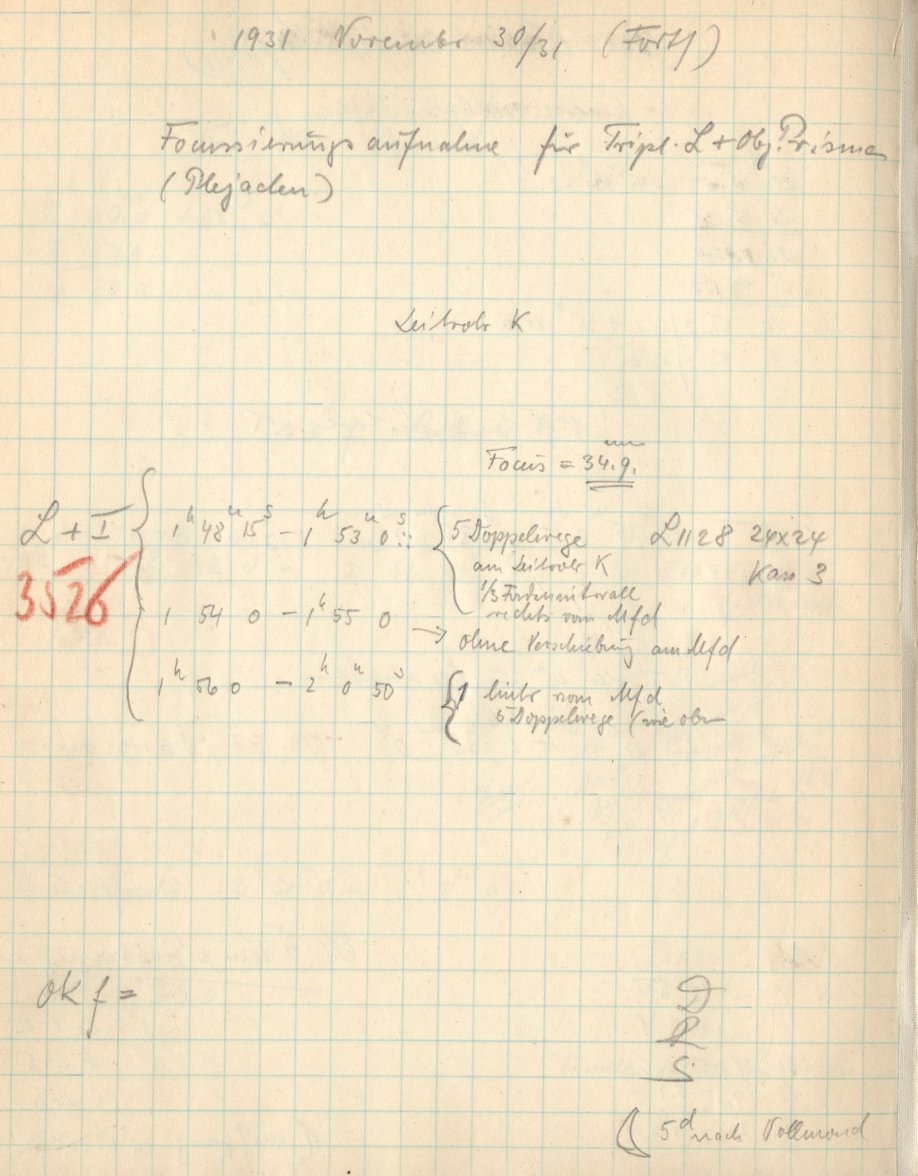 1931 November 30/31 (Fortf)
Focussierungsaufnahme für Tripl. L + Obj. Prisma
(Plejaden)
Leitrohr K
Focus = 34.9. mm
L + I
3526
1h 48m 15s – 1h 53m 0s::
5 Doppelwege
am Leitrohr K
1/3 Fadenintervall
rechts vom Mfd
L1128 24x24
Kass 3
1 54 0 – 1h 55 0
→ ohne Verschiebung am Mfd
1h 56 0 – 2h 0m 50s
links vom Mfd
5 Doppelwege (wie oben
OK f =
D
R
S
5d nach Vollmond